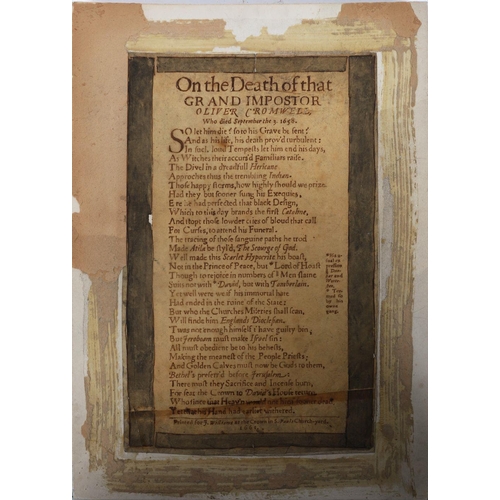 On the Death of that
GRAND IMPOSTOR
OLIVER CROMWELL
Who died September the 3. 1658.
SO let him die! so to his Grave be sent!
And as his life, his death prov'd turbulent:
In such loud Tempests let him end his days,
As Witches their accurs'd Familiars raise.
The Divel in a dreadfull Hericane
Approaches thus the trembling Indian.
Those happy storms, how highly should we prize,
Had they but sooner sung his Exequies,
Ere he had perfected that black Design,
Which to this day brands the first Cataline,
And stopt those lowder cries of bloud that call
For Curses, to attend his Funeral.
The tracing of those sanguine paths he trod
Made Atila be styl'd, The Scourge of God.
Well made this Scarlet Hypocrite his boast,
Not in the Prince of Peace, but * Lord of Hoast
Though to rejoice in numbers of's Men slame
Suits not with * David, but with Tamberlain.
Yet well were we if his immortal hate
Had ended in the ruine of the State:
But who the Churches Miseries shall scan,
Will finde him Englands Dioclesian.
'Twas not enough himself i'have guilty bin,
But Jeroboam must make Israel sin:
All must obedient be to his behests,
Making the meanest of the People Priests;
And Golden Calves must now be Gods to them,
Bethel's prefer'd before Jerusalem:
There must they Sacrifice and Incense burn,
For fear the Crown to David's House return.
Yet his Hand had
Printed for J. at the Crown in S. Pauls Church-yard,